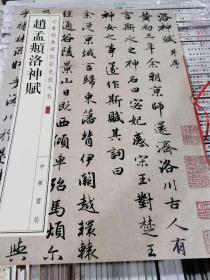 中華經典碑帖彩色放大本
趙孟頫洛神賦
中華書局
洛神賦 并序
三年余朝京師還濟洛川古人有
宓妃感宋玉對楚王
神女之事遂作斯賦其詞曰
余從京域言歸東藩背伊闕越轘轅
陵景山日既西傾車殆馬煩尒
與